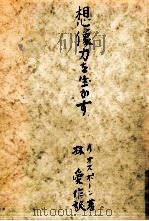 想像力を生かす
A・オスボーン著
林 愛作訳